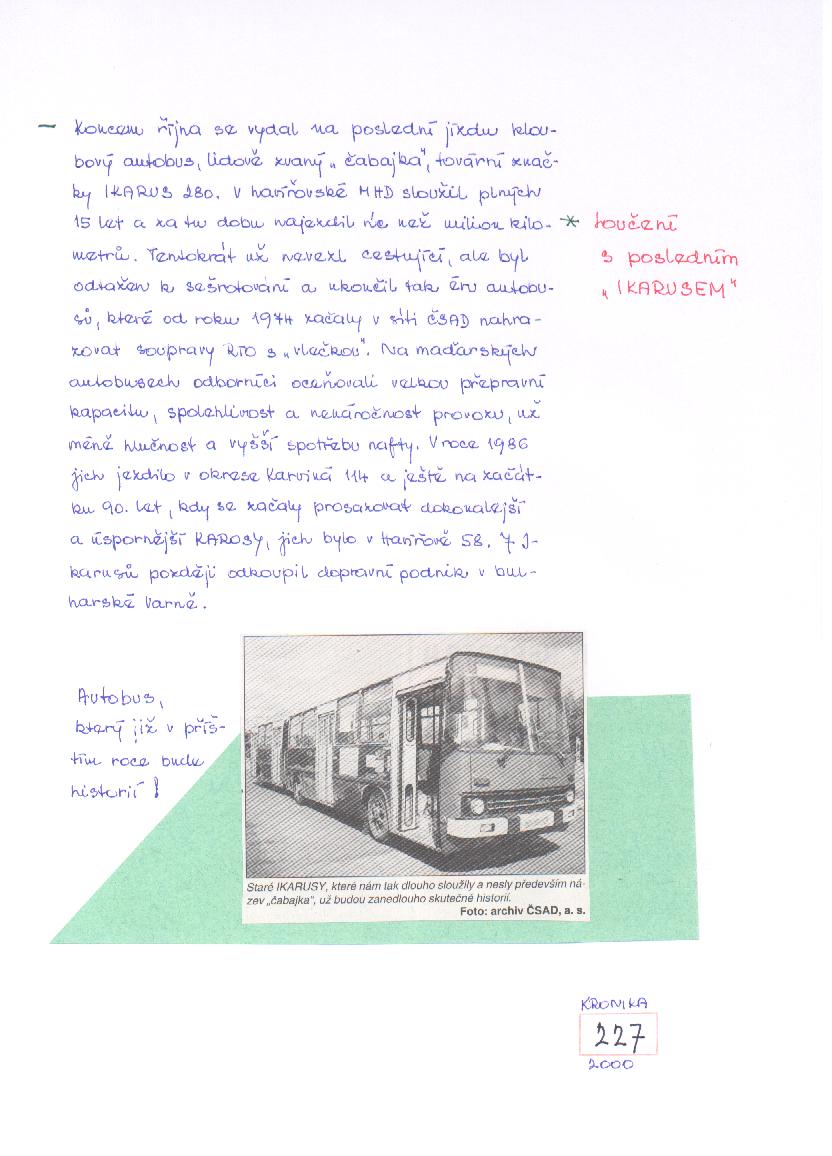 – Koncem října se vydal na poslední jízdu klou-
bový autobus, lidově zvaný „čabajka", tovární znač-
ky IKARUS 280. V havířovské MHD sloužil plných
15 let a za tu dobu najezdil víc než milion kilo-
metrů. Tentokrát už nevezl cestující, ale byl
odtažen k sešrotování a ukončil tak éru autobu-
sů, které od roku 1974 začaly v síti ČSAD nahra-
zovat soupravy RTO s „vlečkou". Na maďarských
autobusech odborníci oceňovali velkou přepravní
kapacitu, spolehlivost a nenáročnost provozu, už
méně hlučnost a vyšší spotřebu nafty. V roce 1986
jich jezdilo v okrese Karviná 114 a ještě na začát-
ku 90. let, kdy se začaly prosazovat dokonalejší
a úspornější KAROSY, jich bylo v Havířově 58. 7 I-
karusů později odkoupil dopravní podnik v bul-
harské Varně.
* Loučení
s posledním
„IKARUSEM"
Autobus,
který již v příš-
tím roce bude
historií!
Staré IKARUSY, které nám tak dlouho sloužily a nesly především ná-
zev „čabajka", už budou zanedlouho skutečně historií.
Foto: archiv ČSAD, a. s.
KRONIKA
227
2000